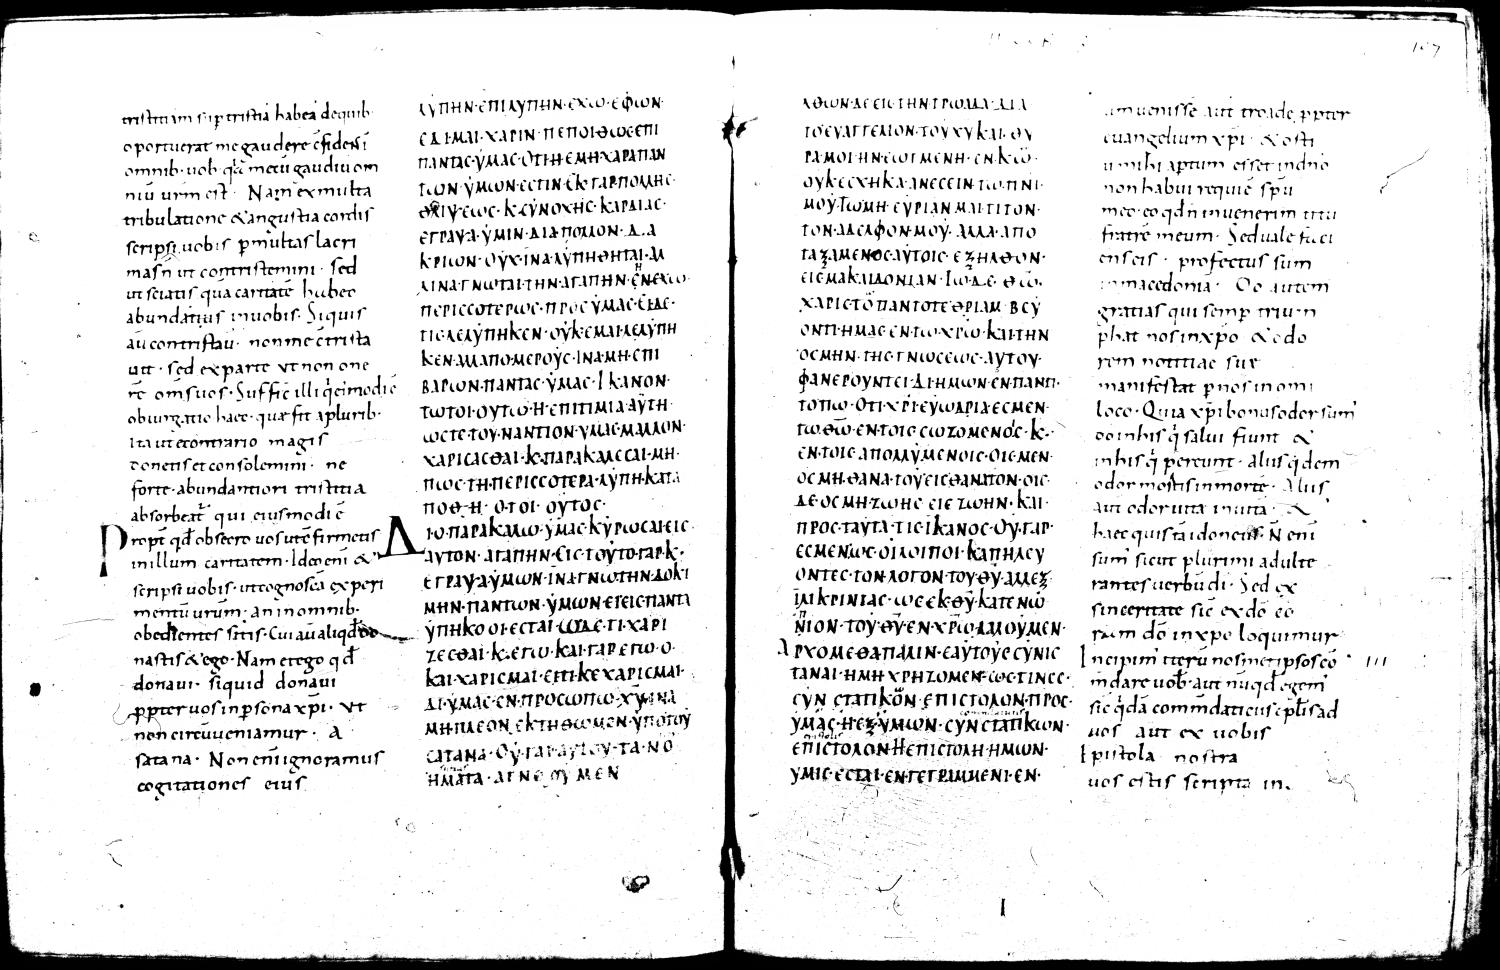 tristitiam sup tristiā habeā dequib·
oportuerat me gaudere cfidens ī
omnib· uob· qa mecū gaudiū om
niū urm est · Nam ex multa
tribulatione & angustia cordis
scripsi uobis p multas lacri
mas n ut contristemini · sed
ut sciatis quā caritatē habeo
abundātius in uobis · Siquis
aū contristau · non me ctrista
uit · sed ex parte ut non one
re oms uos · Suffic illi qeimodi ē
obiurgatio haec · quæ fit a plurib·
Ita ut econtrario magis
donetis et consolemini · ne
forte · abundantiori tristitia
absorbeat qui eiusmodi ē
Propt qd obsecro uos ute firmetis
in illum caritatem · Ideo eni &
scripsi uobis · ut cognoscā experi
mentū urum · an in omnib·
obedientes sitis · Cui aū aliqd do
nastis & ego · Nam et ego qd
donaui · siquid donaui
ppter uos in psona xpi · ut
non circūueniamur · A
satana · Non eni ignoramus
cogitationes eius
ΛΥΠΗΝ·ΕΠΙΛΥΠΗΝ·ΕΧΩ·ΕΦΩΝ·
ΕΔΙ·ΜΑΙ·ΧΑΡΙΝ·ΠΕΠΟΙΘΩϹΕΠΙ
ΠΑΝΤΑϹ·ΥΜΑϹ·ΟΤΙ·Η·ΕΜΗ·ΧΑΡΑΠΑΝ
ΤΩΝ·ΥΜΩΝ·ΕϹΤΙΝ·ΕΚ·ΓΑΡ·ΠΟΛΛΗϹ·
ΘΛΙΨΕΩϹ·Κ·ϹΥΝΟΧΗϹ·ΚΑΡΔΙΑϹ·
ΕΓΡΑΨΑ·ΥΜΙΝ·ΔΙΑ·ΠΟΛΛΟΝ·Δ.Α
ΚΡΙΩΝ·ΟΥΧ·ΙΝΑ·ΛΥΠΗΘΗΤΑΙ·ΑΛ
ΛΙΝΑ·ΓΝΩΤΑΙ·ΤΗΝ·ΑΓΑΠΗΝ·ΕΝ·ΕΧΩ·
ΠΕΡΙϹϹΟΤΕΡΩϹ·ΠΡΟϹ·ΥΜΑϹ·ΕΙ·ΔΕ·
ΤΙϹ·ΛΕΛΥΠΗΚΕΝ·ΟΥΚ·ΕΜΑΙ·ΛΕΛΥΠΗ
ΚΕΝ·ΑΛΛΑΠΟ·ΜΕΡΟΥϹ·ΙΝΑ·ΜΗ·ΕΠΙ
ΒΑΡΩΝ·ΠΑΝΤΑϹ·ΥΜΑϹ·ΙΚΑΝΟΝ·
ΤΩΤΟΙΟΥΤΩ·Η·ΕΠΙΤΙΜΙΑ·ΑΥΤΗ·
ΩϹΤΕ·ΤΟΥ·ΝΑΝΤΙΟΝ·ΥΜΑϹ·ΜΑΛΛΟΝ·
ΧΑΡΙϹΑϹΘΑΙ·Κ·ΠΑΡΑΚΑΛΕϹΑΙ·ΜΗ·
ΠΩϹ·ΤΗ·ΠΕΡΙϹϹΟΤΕΡΑ·ΛΥΠΗ·ΚΑΤΑ
ΠΟΘΗ·Ο·ΤΟΙ·ΟΥΤΟϹ·
ΔΙΟ·ΠΑΡΑΚΑΛΩ·ΥΜΑϹ·ΚΥΡΩϹΑΙ·ΕΙϹ·
ΑΥΤΟΝ·ΑΓΑΠΗΝ·ΕΙϹ·ΤΟΥΤΟ·ΓΑΡ·Κ·
ΕΓΡΑΨΑ·ΥΜΩΝ·ΙΝΑ·ΓΝΩ·ΤΗΝ·ΔΟΚΙ
ΜΗΝ·ΠΑΝΤΩΝ·ΥΜΩΝ·ΕΓΕΙϹ·ΠΑΝΤΑ
ΥΠΗΚΟΟΙ·ΕϹΤΑΙ·ΩΔΕ·ΤΙ·ΧΑΡΙ
ΖΕϹΘΑΙ·Κ·ΕΓΩ·ΚΑΙ·ΓΑΡ·ΕΓΩ·Ο·
ΚΑΙ·ΧΑΡΙϹΜΑΙ·ΕΙΤΙ·ΚΕΧΑΡΙϹΜΑΙ·
ΔΙ·ΥΜΑϹ·ΕΝ·ΠΡΟϹΩΠΩ·ΧΥ·ΙΝΑ
ΜΗ·ΠΛΕΟΝΕΚΤΗΘΩΜΕΝ·ΥΠΟΤΟΥ
ϹΑΤΑΝΑ·ΟΥ·ΓΑΡ·ΑΥΤΟΥ·ΤΑ·ΝΟ
ΗΜΑΤΑ·ΑΓΝΟΟΥΜΕΝ
107
ΛΘΩΝ·ΔΕ·ΕΙϹ·ΤΗΝ·ΤΡΩΑΔΑ·ΔΙΑ
ΤΟ·ΕΥΑΓΓΕΛΙΟΝ·ΤΟΥ·ΧΥ·ΚΑΙ·ΘΥ
ΡΑ·ΜΟΙ·ΗΝ·ΕΩΓΜΕΝΗ·ΕΝ·ΚΩ·
ΟΥΚ·ΕϹΧΗΚΑ·ΑΝΕϹΕΙΝ·ΤΩ·ΠΝΙ·
ΜΟΥ·ΤΩ·ΜΗ·ΕΥΡΙΑΝ·ΜΑΙ·ΤΙΤΟΝ·
ΤΟΝ·ΑΔΕΛΦΟΝ·ΜΟΥ·ΑΛΛΑ·ΑΠΟ
ΤΑΞΑΜΕΝΟϹ·ΑΥΤΟΙϹ·ΕΞΗΛΘΟΝ·
ΕΙϹ·ΜΑΚΑΙΔΟΝΙΑΝ·ΤΩ·ΔΕ·ΘΩ·
ΧΑΡΙϹ·ΤΟ·ΠΑΝΤΟΤΕ·ΘΡΙΑΜΒΕΥ
ΟΝΤΙ·ΗΜΑϹ·ΕΝ·ΤΩ·ΧΡΩ·ΚΑΙ·ΤΗΝ
ΟϹΜΗΝ·ΤΗϹ·ΓΝΩϹΕΩϹ·ΑΥΤΟΥ·
ΦΑΝΕΡΟΥΝΤΕΙ·ΔΙ·ΗΜΩΝ·ΕΝ·ΠΑΝΤΙ·
ΤΟΠΩ·ΟΤΙ·ΧΡΙ·ΕΥΩΔΡΙΑ·ΕϹΜΕΝ·
ΤΩ·ΘΩ·ΕΝ·ΤΟΙϹ·ϹΩΖΟΜΕΝΟϹ·Κ·
ΕΝ·ΤΟΙϹ·ΑΠΟΛΛΥΜΕΝΟΙϹ·ΟΙϹ·ΜΕΝ·
ΟϹΜΗ·ΘΑΝΑΤΟΥ·ΕΙϹ·ΘΑΝΑΤΟΝ·ΟΙϹ·
ΔΕ·ΟϹΜΗ·ΖΩΗϹ·ΕΙϹ·ΖΩΗΝ·ΚΑΙ·
ΠΡΟϹ·ΤΑΥΤΑ·ΤΙϹ·ΙΚΑΝΟϹ·ΟΥ·ΓΑΡ·
ΕϹΜΕΝ·ΩϹ·ΟΙ·ΛΟΙΠΟΙ·ΚΑΠΗΛΕΥ
ΟΝΤΕϹ·ΤΟΝ·ΛΟΓΟΝ·ΤΟΥ·ΘΥ·ΑΛΛΕΞ
ΙΛΙΚΡΙΝΙΑϹ·ΩϹ·ΕΚ·ΘΥ·ΚΑΤΕΝΩ
ΠΙΟΝ·ΤΟΥ·ΘΥ·ΕΝ·ΧΡΩ·ΛΑΛΟΥΜΕΝ·
ΑΡΧΟΜΕΘΑ·ΠΑΛΙΝ·ΕΑΥΤΟΥϹ·ϹΥΝΙϹ
ΤΑΝΑΙ·Η·ΜΗ·ΧΡΗΖΟΜΕΝ·ΩϹ·ΤΙΝΕϹ·
ϹΥΝϹΤΑΤΙΚΩΝ·ΕΠΙϹΤΟΛΟΝ·ΠΡΟϹ·
ΥΜΑϹ·Η·ΕΞ·ΥΜΩΝ·ϹΥΝϹΤΑΤΙΚΩΝ·
ΕΠΙϹΤΟΛΟΝ·Η·ΕΠΙϹΤΟΛΗ·ΗΜΩΝ·
ΥΜΙϹ·ΕϹΤΑΙ·ΕΝΓΕΓΡΑΜΜΕΝΙ·ΕΝ·
um uenissē aut troade ppter
euangelium xpi · & osti
ū mihi aptum esset indno
non habui requiē spu
meo · eo qd n inuenerim titū
fratrē meum · Sed uale feci
ens eis · profectus sum
in macedonia · Do autem
gratias qui semp triu n
phat nos in xpo & odo
rem notitiae suæ
manifestat p nos in omi
loco · Quia xpi bonus odor sum
do in his q salui fiunt &
in his q pereunt · aliis qdem
odor mortis in morte · Aliis
aut odor uita in uita · &
haec quis ta idoneus · N eni
sum sicut plurimi adulte
rantes uerbū di · Sed ex
sinceritate sic ex do co
ram do in xpo loquimur
Incipim iterū nosmet ipsos cō III
mdare uob· aut nuqd egem
sic qda commdaticiis eplis ad
uos aut ex uobis
Epistola nostra
uos estis scripta in.